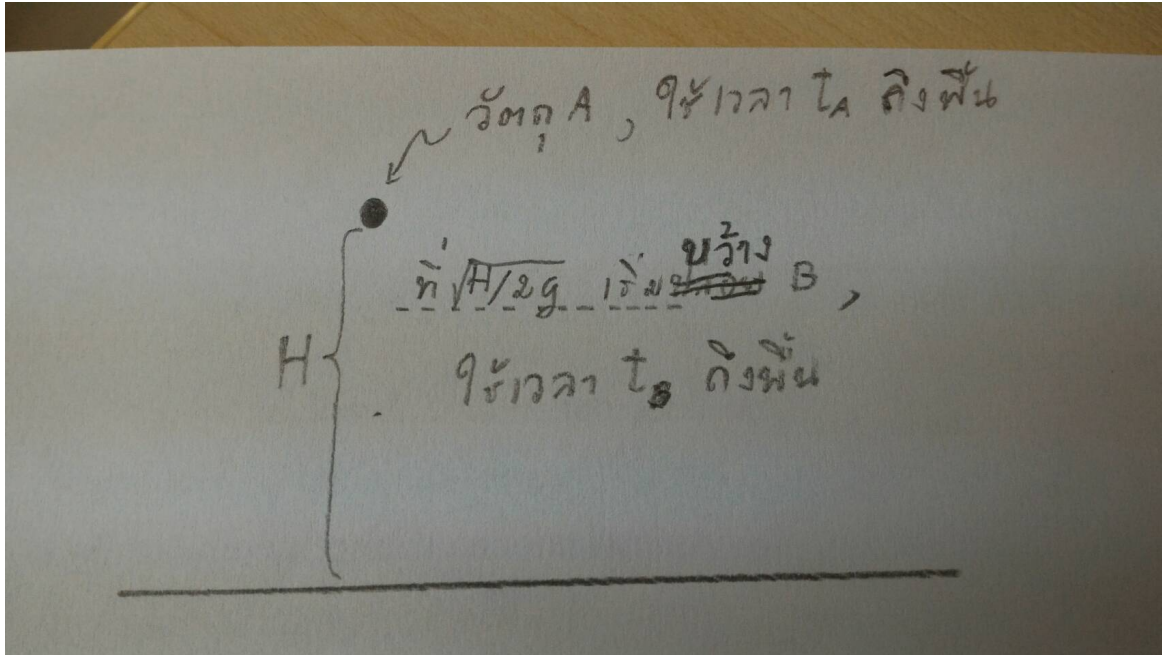 วัตถุ A , ใช้เวลา t_A ถึงพื้น
ที่ √H/2g เริ่มขว้าง B ,
H
ใช้เวลา t_B ถึงพื้น